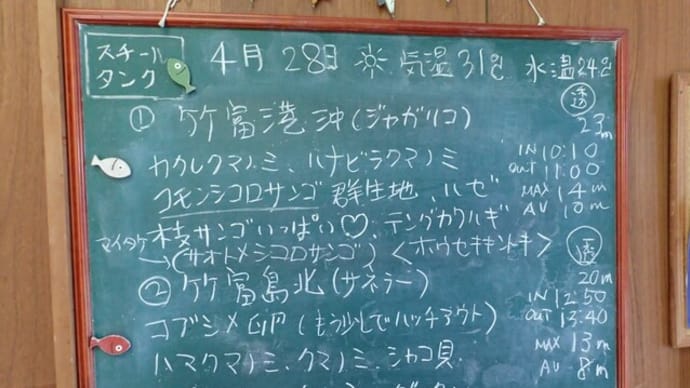 スチール
タンク
4月 28日 ☀ 気温31℃ 水温24℃
① 竹富港沖(ジャガリコ)
透 23m
カクレクマノミ、ハナビラクマノミ
IN 10:10
OUT 11:00
コモンシコロサンゴ 群生地、ハゼ
MAX 14m
AV 10m
枝サンゴいっぱい♡、テングカワハギ
マイタケ→(サオトメシコロサンゴ) <ホウセキキントキ>
② 竹富島北(サネラー)
透 20m
コブシメ卵(もう少しでハッチアウト)
IN 12:50
OUT 13:40
ハマクマノミ、クマノミ、シャコ貝
MAX 13m
AV 8m